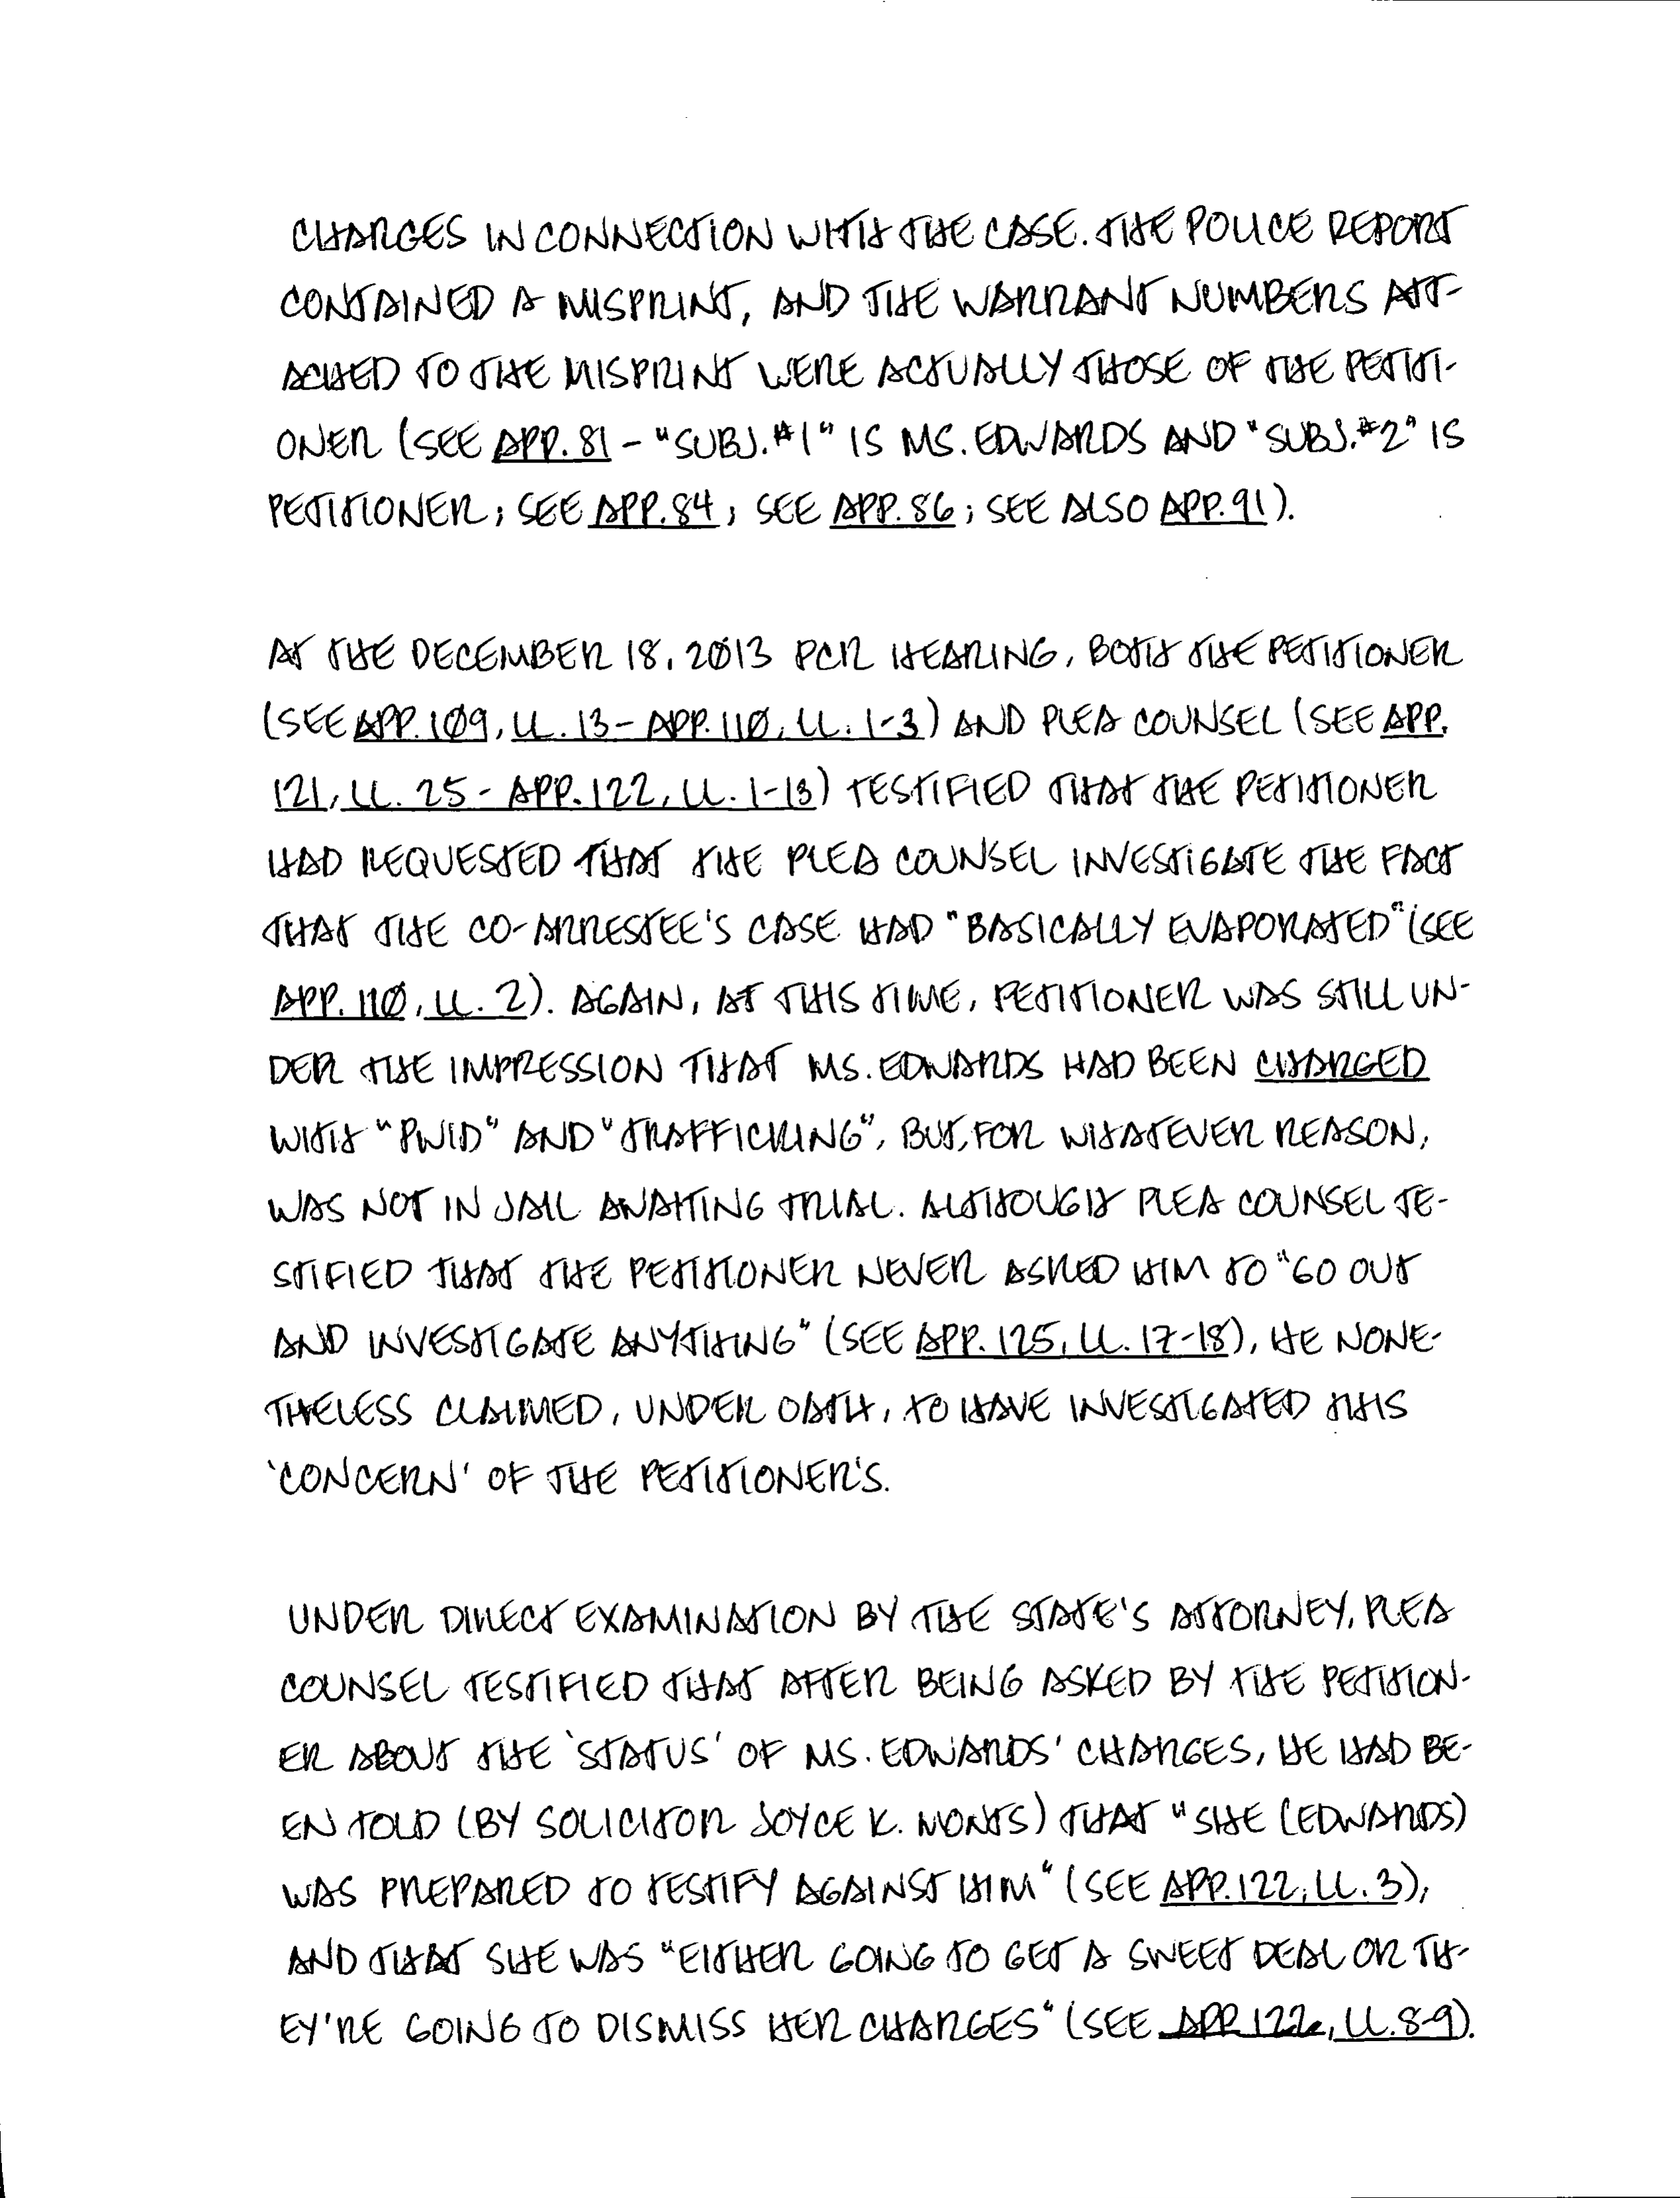 CHARGES IN CONNECTION WITH THE CASE. THE POLICE REPORT
CONTAINED A MISPRINT, AND THE WARRANT NUMBERS ATT-
ACHED TO THE MISPRINT WERE ACTUALLY THOSE OF THE PETITI-
ONER (SEE APP. 81 - "SUBJ. #1" IS MS. EDWARDS AND "SUBJ. #2" IS
PETITIONER; SEE APP. 84; SEE APP. 86; SEE ALSO APP. 91).
AT THE DECEMBER 18, 2013 PCR HEARING, BOTH THE PETITIONER
(SEE APP. 109, LL. 13 - APP. 110, LL. 1-3) AND PLEA COUNSEL (SEE APP.
121, LL. 25 - APP. 122, LL. 1-13) TESTIFIED THAT THE PETITIONER
HAD REQUESTED THAT THE PLEA COUNSEL INVESTIGATE THE FACT
THAT THE CO-ARRESTEE'S CASE HAD "BASICALLY EVAPORATED" (SEE
APP. 110, LL. 2). AGAIN, AT THIS TIME, PETITIONER WAS STILL UN-
DER THE IMPRESSION THAT MS. EDWARDS HAD BEEN CHARGED
WITH "PWID" AND "TRAFFICKING", BUT, FOR WHATEVER REASON,
WAS NOT IN JAIL AWAITING TRIAL. ALTHOUGH PLEA COUNSEL TE-
STIFIED THAT THE PETITIONER NEVER ASKED HIM TO "GO OUT
AND INVESTIGATE ANYTHING" (SEE APP. 125, LL. 17-18), HE NONE-
THELESS CLAIMED, UNDER OATH, TO HAVE INVESTIGATED THIS
'CONCERN' OF THE PETITIONER'S.
UNDER DIRECT EXAMINATION BY THE STATE'S ATTORNEY, PLEA
COUNSEL TESTIFIED THAT AFTER BEING ASKED BY THE PETITION-
ER ABOUT THE 'STATUS' OF MS. EDWARDS' CHARGES, HE HAD BE-
EN TOLD (BY SOLICITOR JOYCE K. MONTS) THAT "SHE (EDWARDS)
WAS PREPARED TO TESTIFY AGAINST HIM" (SEE APP. 122, LL. 3),
AND THAT SHE WAS "EITHER GOING TO GET A SWEET DEAL OR TH-
EY'RE GOING TO DISMISS HER CHARGES" (SEE APP. 122, LL. 8-9).